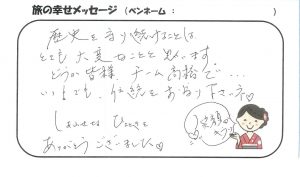 旅の幸せメッセージ（ペンネーム：　　　　）
歴史を守り続けることは
とても大変なことと思います
どうか皆様 チーム 高裕 で…
いつまでも、伝統をお守り下さいネ♡
しあわせな ひとときを
ありがとうございました♡
笑顔が